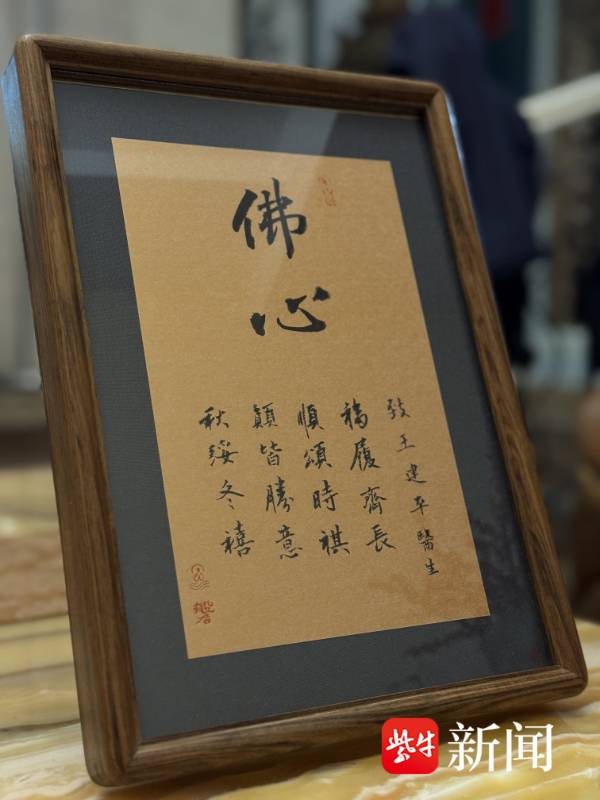 佛心
致王建平醫生
福履齊長
順頌時祺
願皆勝意
秋綏冬禧
紫牛新闻